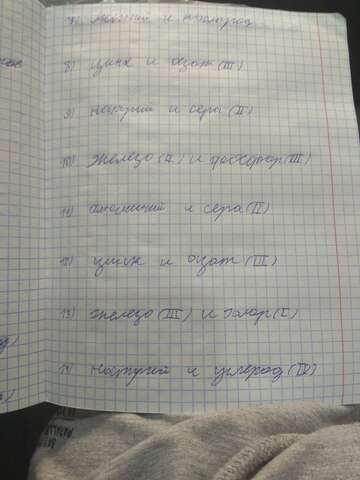 7) магний и кислород
8) цинк и азот (III)
9) натрий и сера (II)
10) Железо (II) и фосфор (III)
11) алюминий и сера (II)
12) цинк и азот (III)
13) железо (III) и хлор (I)
14) натрий и углерод (IV)